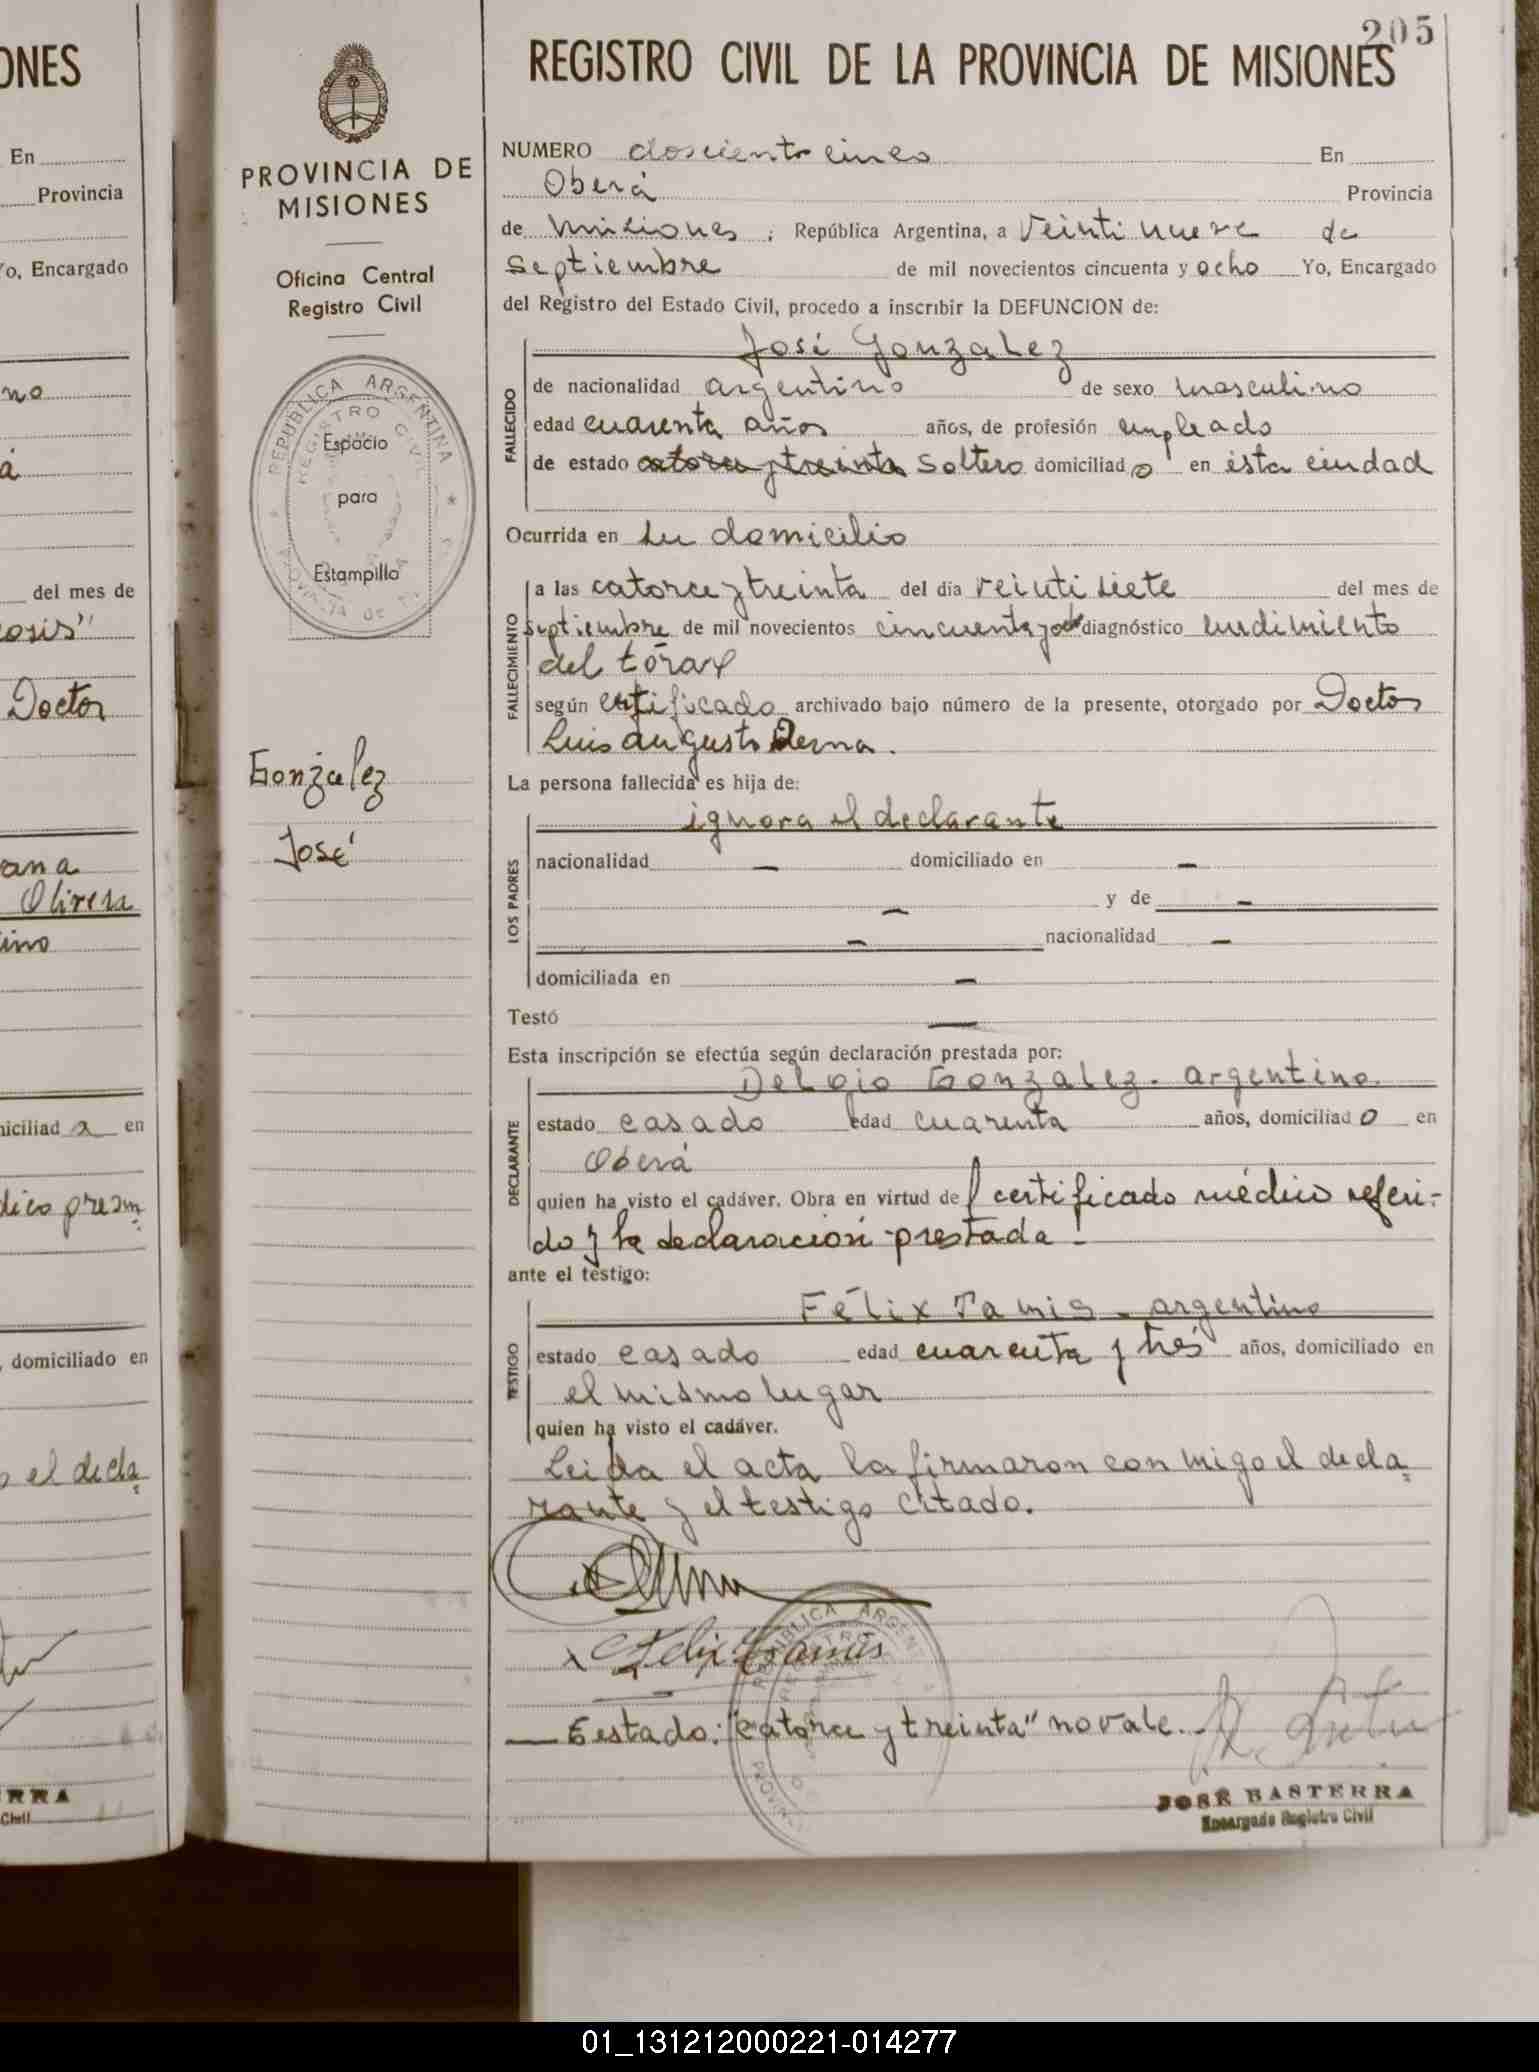 205
ONES
En
Provincia
Yo, Encargado
no
á
del mes de
osis"
Doctor
ana
Olivera
ino
miciliad a en
dico presun
, domiciliado en
el decla
RRA
Civil
PROVINCIA DE
MISIONES
Oficina Central
Registro Civil
REPUBLICA ARGENTINA
REGISTRO CIVIL
Espacio
para
Estampilla
González
José
REGISTRO CIVIL DE LA PROVINCIA DE MISIONES
NUMERO dosciento cinco En
Oberá Provincia
de Misiones ; República Argentina, a veinti nueve de
septiembre de mil novecientos cincuenta y ocho Yo, Encargado
del Registro del Estado Civil, procedo a inscribir la DEFUNCION de:
José Gonzalez
FALLECIDO
de nacionalidad argentino de sexo masculino
edad cuarenta años años, de profesión empleado
de estado catorce y treinta soltero domiciliad o en ésta ciudad
Ocurrida en su domicilio
FALLECIMIENTO
a las catorce y treinta del día veinti siete del mes de
septiembre de mil novecientos cincuenta y ocho diagnóstico undimiento
del tórax
según certificado archivado bajo número de la presente, otorgado por Doctor
Luis augusto Derna.
La persona fallecida es hija de:
ignora el declarante
LOS PADRES
nacionalidad — domiciliado en —
— y de —
— nacionalidad —
domiciliada en —
Testó —
Esta inscripción se efectúa según declaración prestada por:
Delcio Gonzalez - argentino
DECLARANTE
estado casado edad cuarenta años, domiciliad o en
Oberá
quien ha visto el cadáver. Obra en virtud de certificado médico referi-
do y la declaración prestada
ante el testigo:
Félix Tamis - argentino
TESTIGO
estado casado edad cuarenta y trés años, domiciliado en
el mismo lugar
quien ha visto el cadáver.
Leida el acta la firmaron con migo el decla
rante y el testigo citado.
x Felix Tamis
REPUBLICA ARGENTINA
— Testado: "catorce y treinta" no vale.
JOSÉ BASTERRA
Encargado Registro Civil
01_131212000221-014277